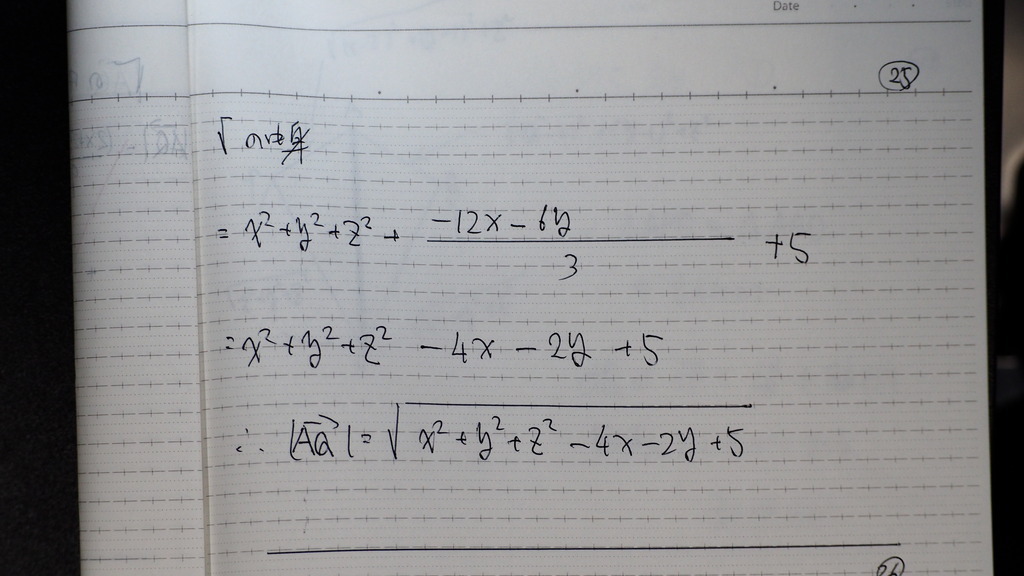 Date
25
√ の中身
= x² + y² + z² + (-12x - 6y)/3 + 5
= x² + y² + z² - 4x - 2y + 5
∴ |AQ→| = √(x² + y² + z² - 4x - 2y + 5)
26